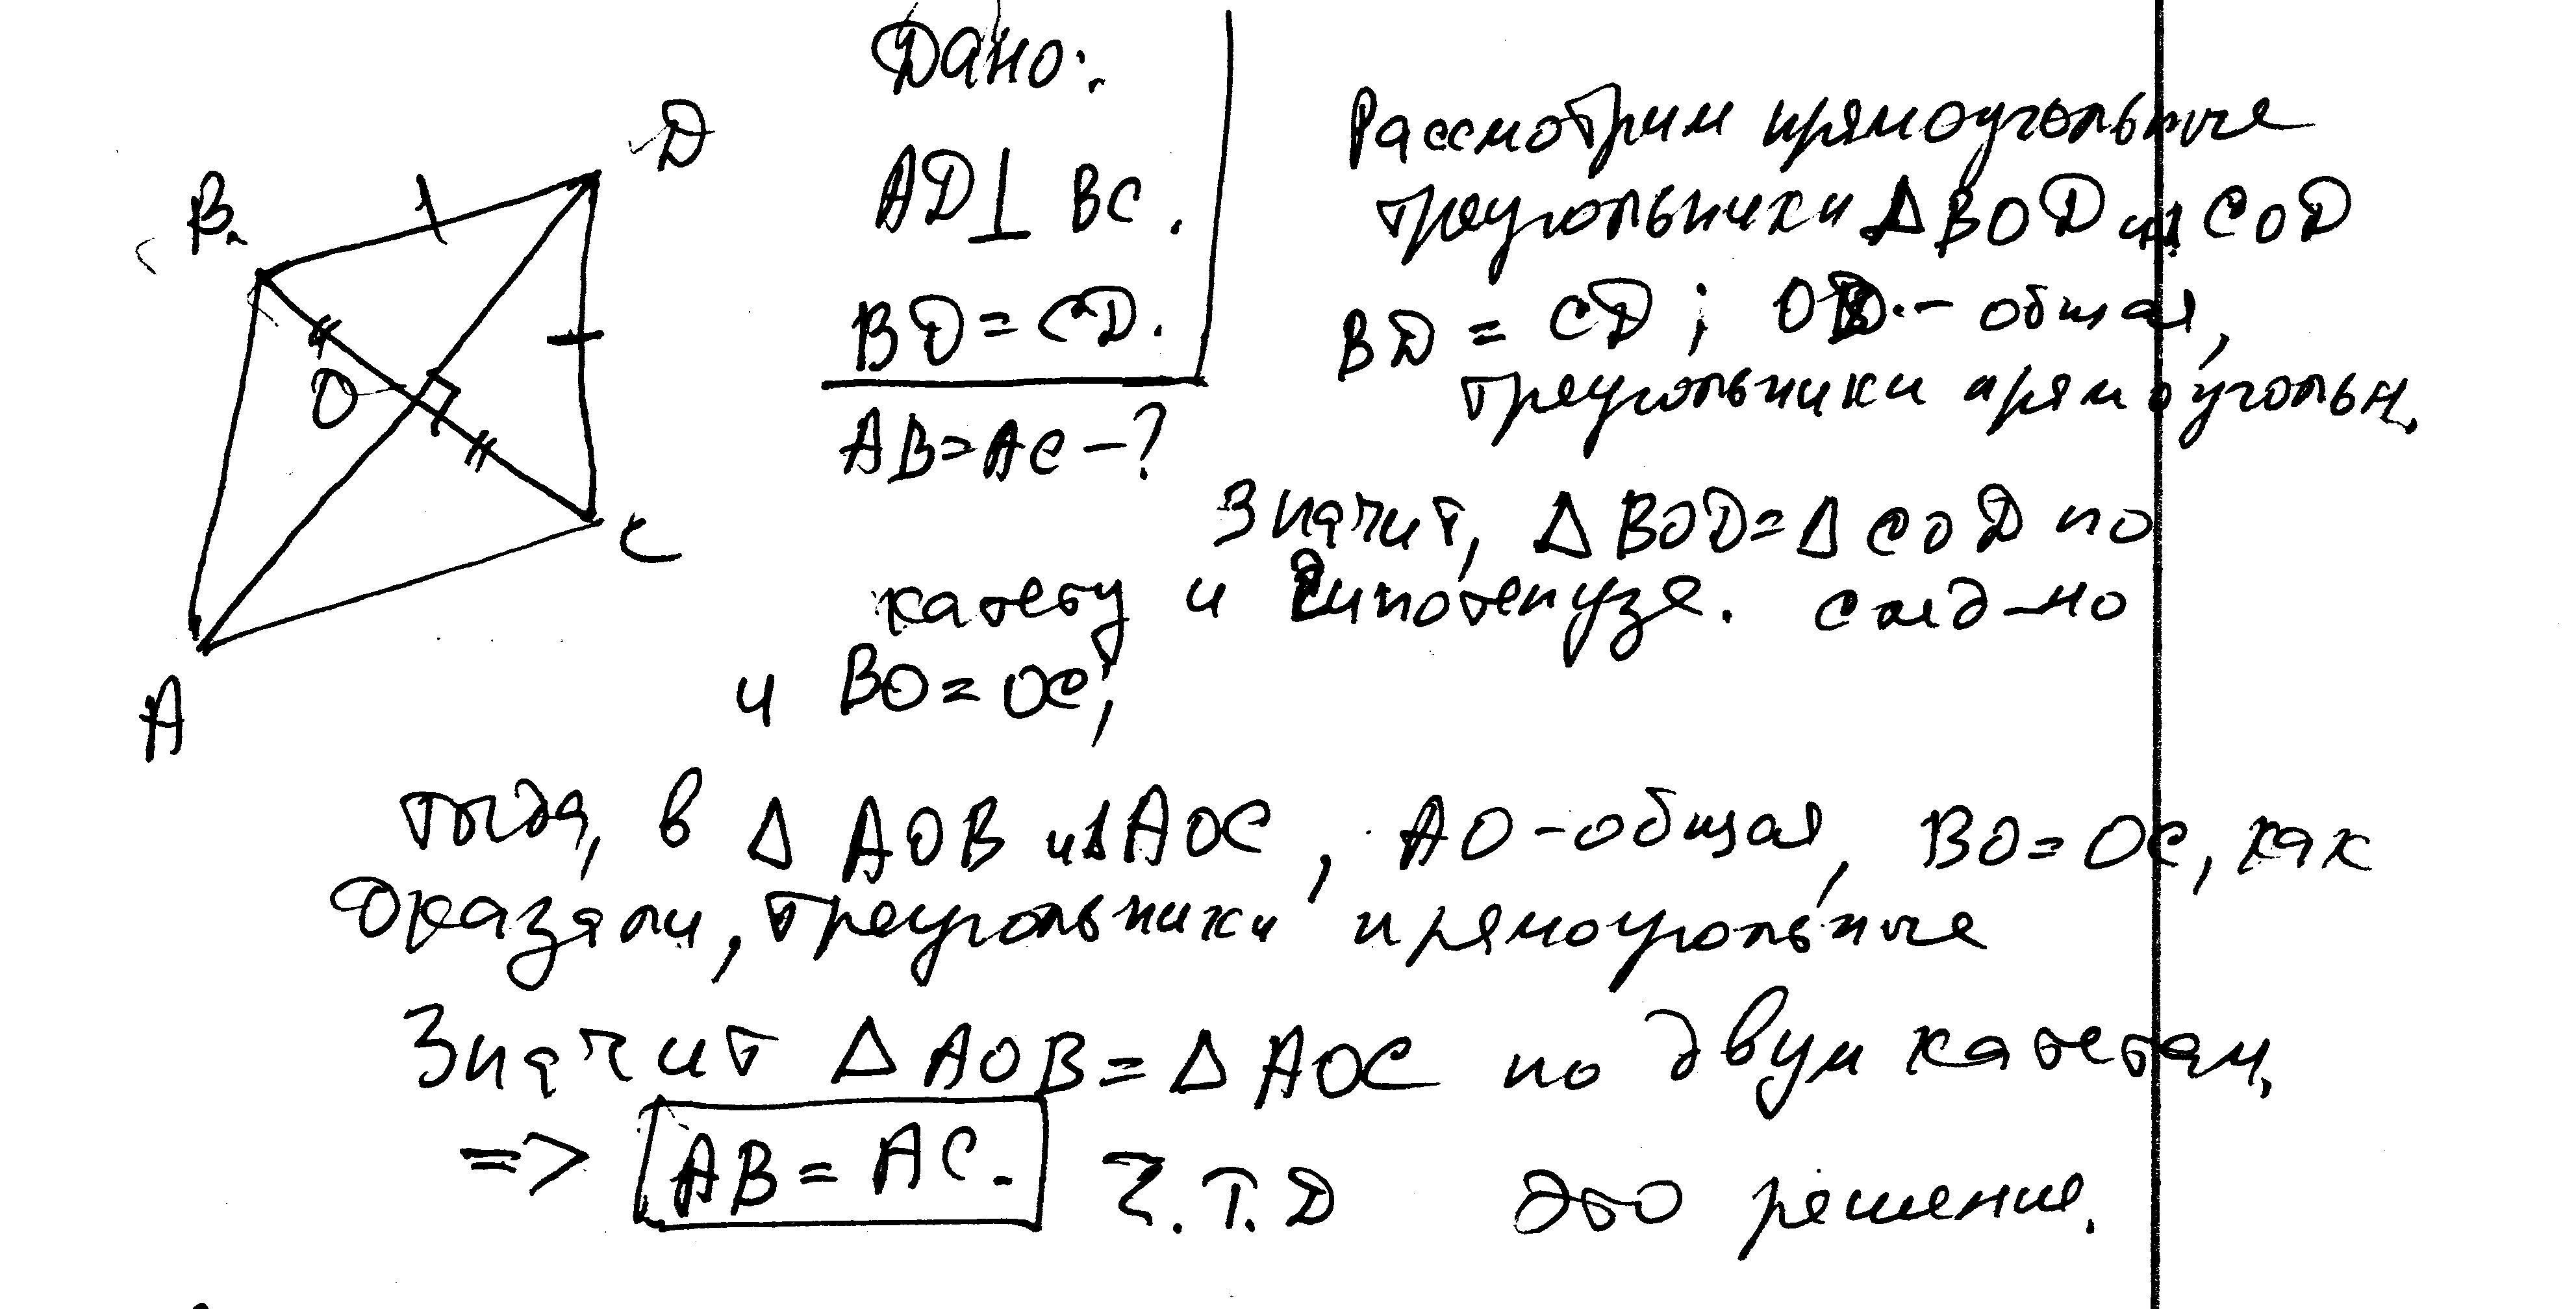 Дано:
AD⊥BC.
BD=CD.
AB=AC-?
B
D
O
C
A
Рассмотрим прямоугольные
треугольники ΔBOD и ΔCOD
BD = CD; OD - общая,
треугольники прямоугольн.
Значит, ΔBOD=ΔCOD по
катету и гипотенузе. след-но
и BO=OC,
тогда, в ΔAOB и ΔAOC, AO-общая, BO=OC, как
доказали, треугольники прямоугольные
Значит ΔAOB=ΔAOC по двум катетам,
=> AB=AC. Ч.Т.Д Это решение.